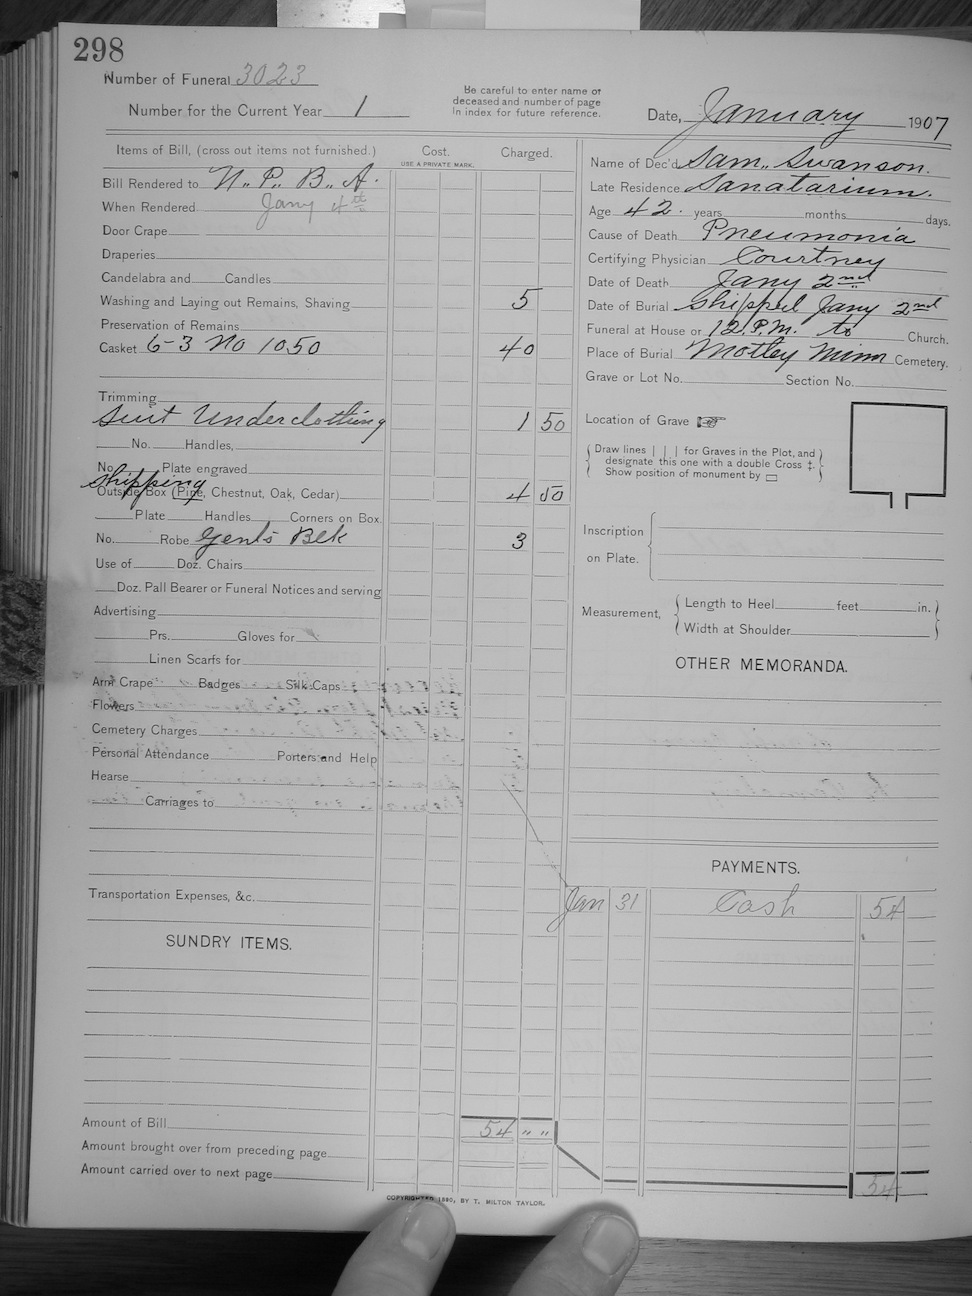 298
Number of Funeral 3023
Number for the Current Year 1
Be careful to enter name of
deceased and number of page
in index for future reference.
Date, January 1907
Items of Bill, (cross out items not furnished.) Cost. Charged.
USE A PRIVATE MARK.
Bill Rendered to N.. P.. B.. A.
When Rendered Jany 4th
Door Crape
Draperies
Candelabra and Candles
Washing and Laying out Remains, Shaving 5
Preservation of Remains
Casket 6-3 No 1050 40
Trimming
Suit Underclothing 1 50
No. Handles,
No. Plate engraved
Shipping
Outside Box (Pine, Chestnut, Oak, Cedar) 4 50
Plate Handles Corners on Box.
No. Robe Gent's Blk 3
Use of Doz. Chairs
Doz. Pall Bearer or Funeral Notices and serving
Advertising
Prs. Gloves for
Linen Scarfs for
Arm Crape Badges Silk Caps
Flowers
Cemetery Charges
Personal Attendance Porters and Help
Hearse
Carriages to
Transportation Expenses, &c.
SUNDRY ITEMS.
Amount of Bill 54 " "
Amount brought over from preceding page
Amount carried over to next page
Name of Dec'd Sam.. Swanson.
Late Residence Sanatarium.
Age 42. years months days.
Cause of Death Pneumonia
Certifying Physician Courtney
Date of Death Jany 2nd
Date of Burial Shipped Jany 2nd
Funeral at House or 12.P.M. to Church.
Place of Burial Motley Minn Cemetery.
Grave or Lot No. Section No.
Location of Grave
Draw lines | | | for Graves in the Plot, and
designate this one with a double Cross ‡.
Show position of monument by ▭
Inscription
on Plate.
Measurement, Length to Heel feet in.
Width at Shoulder
OTHER MEMORANDA.
PAYMENTS.
Jan 31 Cash 54
54
COPYRIGHTED 1890, BY T. MILTON TAYLOR.